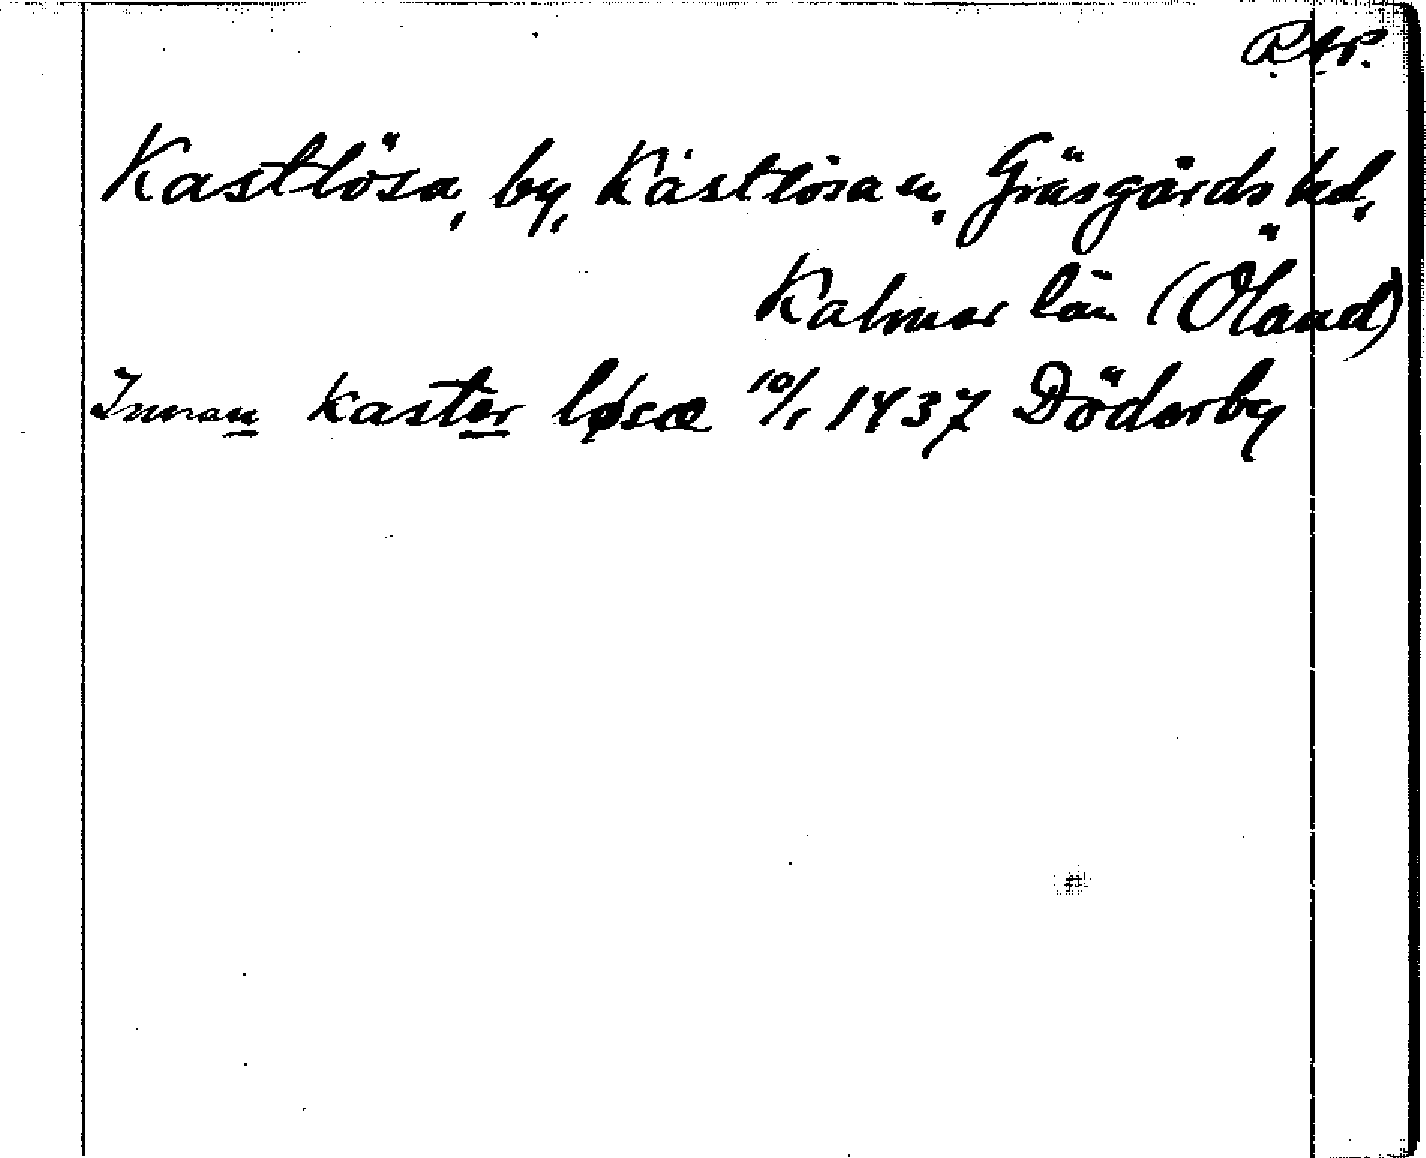 RAP.
Kastlösa, by, Kastlösa sn. Gräsgårds hd,
Kalmar län (Öland)
Innan kaster løsæ 10/1 1437 Döderby